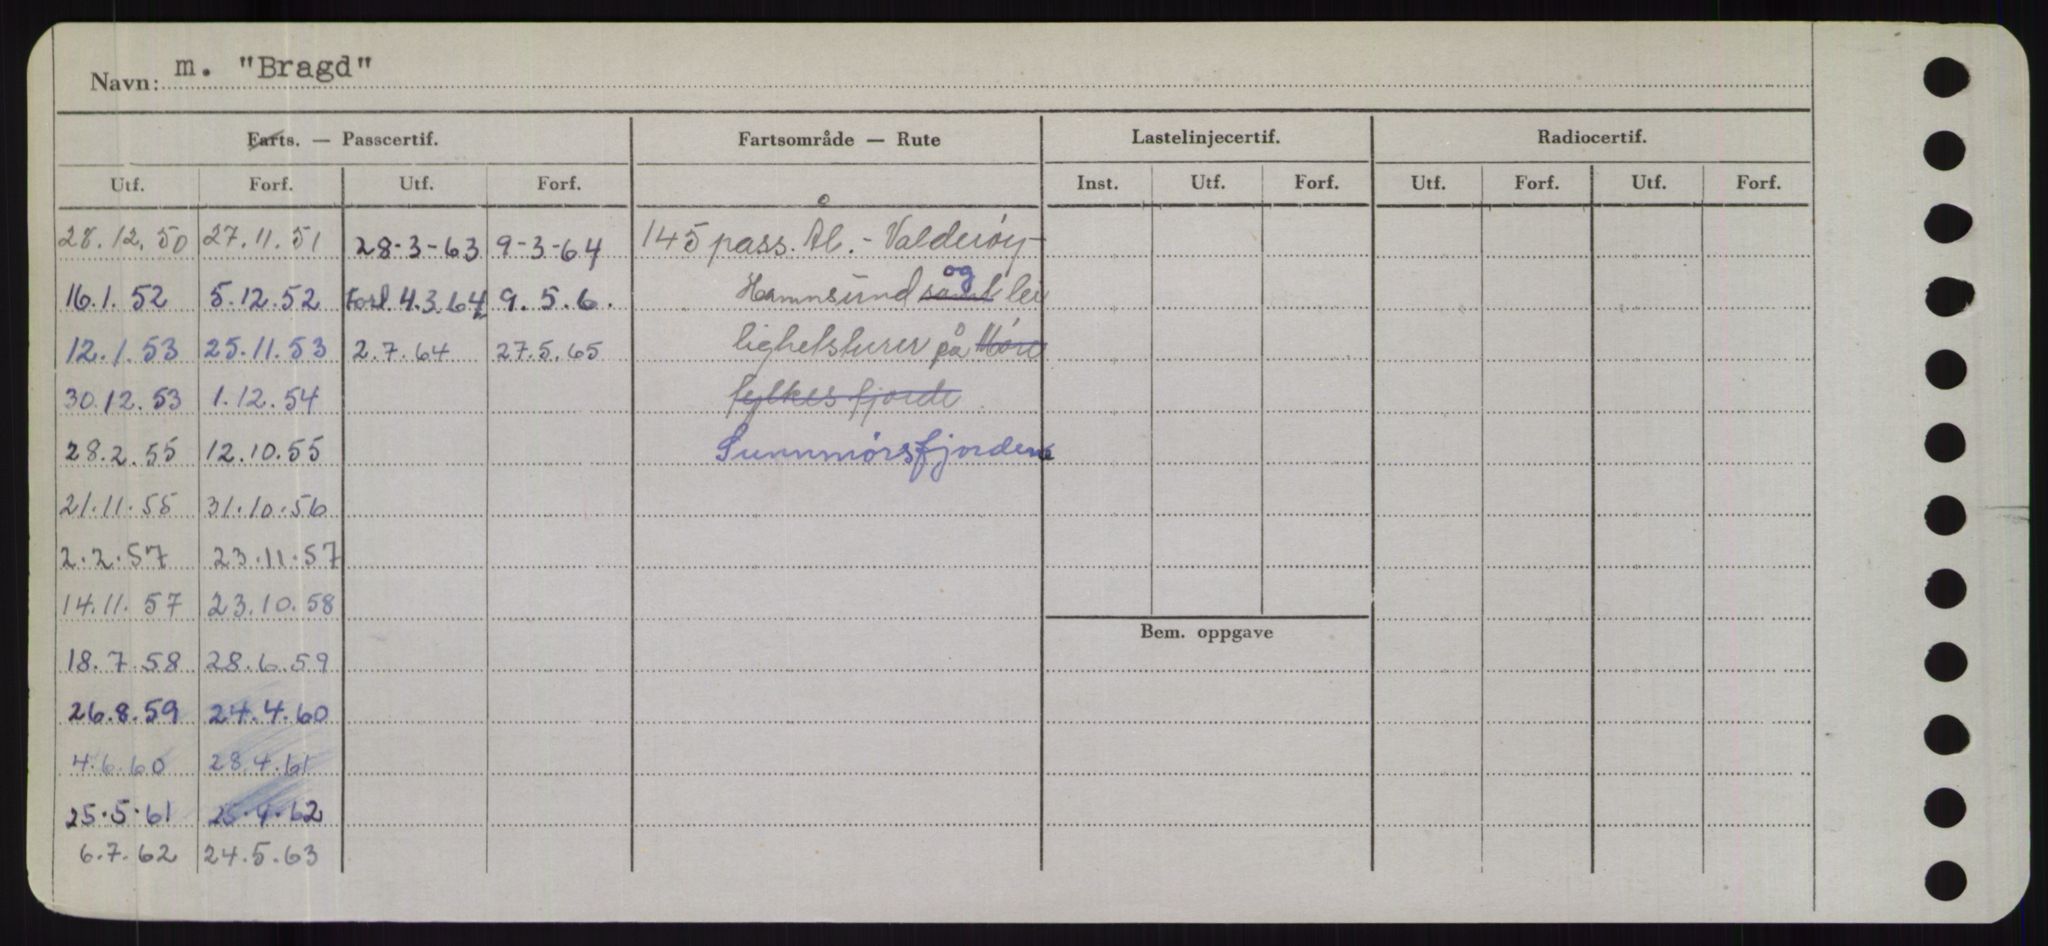 Navn: m. "Bragd"
Farts. — Passcertif. Fartsområde — Rute Lastelinjecertif. Radiocertif.
Utf. Forf. Utf. Forf. Inst. Utf. Forf. Utf. Forf. Utf. Forf.
28.12.50 27.11.51 28-3-63 9-3-64 145 pass. Ål. - Valderøy-
16.1.52 5.12.52 Forl. 4.3.64 9.5.6. Hamnsund samt og lei
12.1.53 25.11.53 2.7.64 27.5.65 lighetsturer på Møre
30.12.53 1.12.54 fylkes fjorde
28.2.55 12.10.55 Sunnmørsfjordene
21.11.55 31.10.56
2.2.57 23.11.57
14.11.57 23.10.58
Bem. oppgave
18.7.58 28.6.59
26.8.59 24.4.60
4.6.60 28.4.61
25.5.61 25.4.62
6.7.62 24.5.63